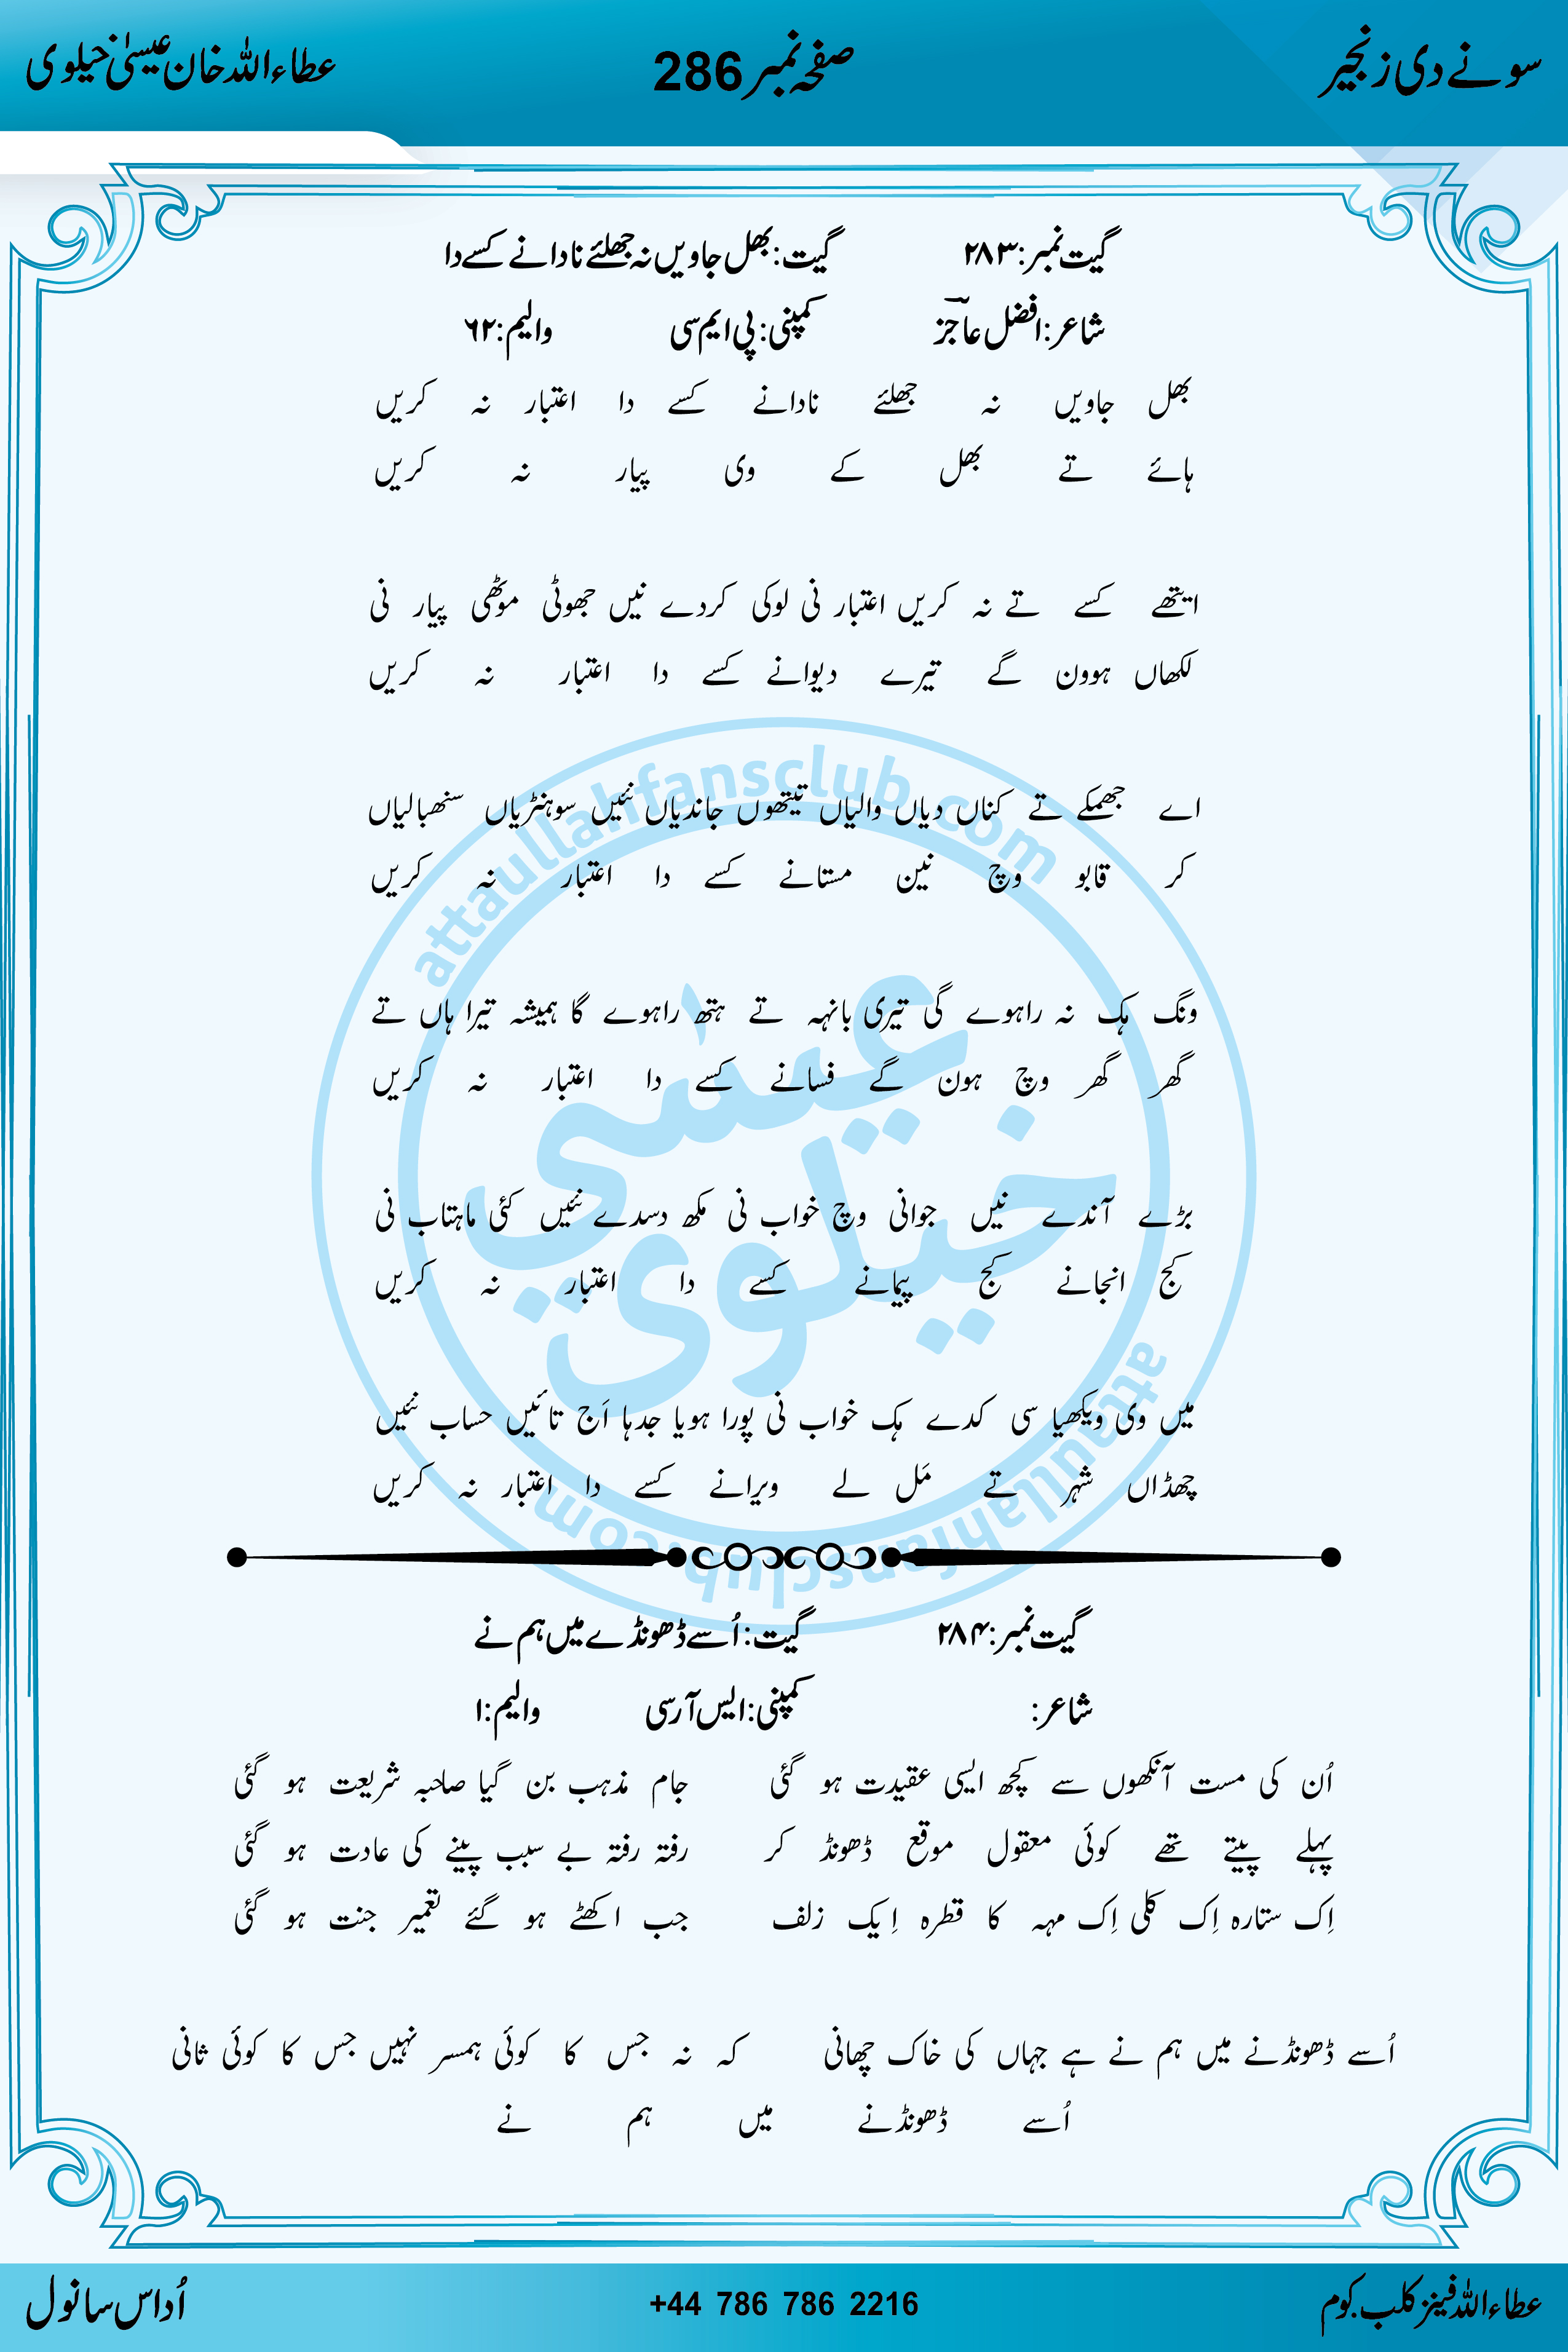 سونے دی زنجیر صفحہ نمبر 286 عطاءاللہ خان عیسیٰ خیلوی
گیت نمبر: ۲۸۳ گیت: بھل جاویں نہ جھلئے نادانے کسے دا
شاعر: افضل عاجزؔ کمپنی: پی ایم سی والیم: ۶۲
بھل جاویں نہ جھلئے نادانے کسے دا اعتبار نہ کریں
ہائے تے بھل کے وی پیار نہ کریں
ایتھے کسے تے نہ کریں اعتبار نی لوکی کردے نیں جھوٹی موٹھی پیار نی
لکھاں ہوون گے تیرے دیوانے کسے دا اعتبار نہ کریں
اے جھمکے تے کناں دیاں والیاں تیتھوں جاندیاں نئیں سوہنڑیاں سنھبالیاں
کر قابو وچ نین مستانے کسے دا اعتبار نہ کریں
ونگ ہک نہ راہوے گی تیری بانہہ تے ہتھ راہوے گا ہمیشہ تیرا ہاں تے
گھر گھر وچ ہون گے فسانے کسے دا اعتبار نہ کریں
بڑے آندے نیں جوانی وچ خواب نی مکھ دسدے نئیں کئی ماہتاب نی
کج انجانے کج پیمانے کسے دا اعتبار نہ کریں
میں وی ویکھیا سی کدے ہک خواب نی پورا ہویا جدہا اَج تائیں حساب نئیں
چھڈاں شہر تے مَل لے ویرانے کسے دا اعتبار نہ کریں
گیت نمبر: ۲۸۴ گیت: اُسے ڈھونڈے میں ہم نے
شاعر: کمپنی: ایس آر سی والیم: ۱
اُن کی مست آنکھوں سے کچھ ایسی عقیدت ہو گئی جام مذہب بن گیا صاحبہ شریعت ہو گئی
پہلے پیتے تھے کوئی معقول موقع ڈھونڈ کر رفتہ رفتہ بے سبب پینے کی عادت ہو گئی
اِک ستارہ اِک کلی اِک مہہ کا قطرہ اِیک زلف جب اکھٹے ہو گئے تعمیر جنت ہو گئی
اُسے ڈھونڈنے میں ہم نے ہے جہاں کی خاک چھانی کہ نہ جس کا کوئی ہمسر نہیں جس کا کوئی ثانی
اُسے ڈھونڈنے میں ہم نے
attaullahfansclub.com
عیسٰی
خیلوی
attaullahfansclub.com
عطاءاللہ فینز کلب.کوم +44 786 786 2216 اُداس سانول